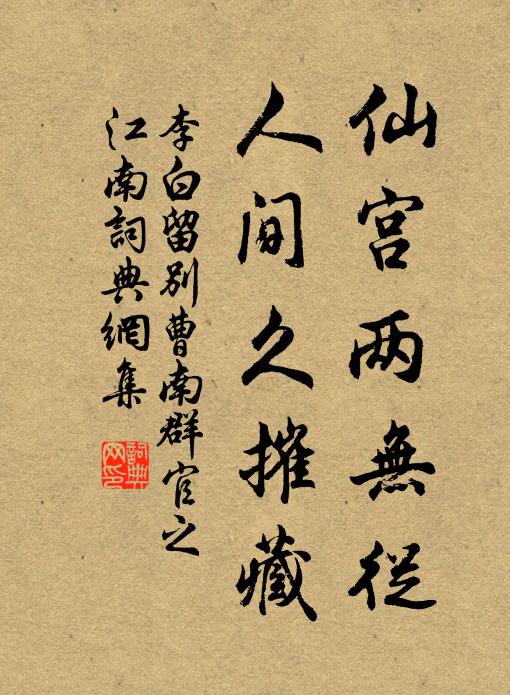 仙宫两無從
人间久摧藏
李白留别曹南群官之
江南詞典網集
詞典
网印